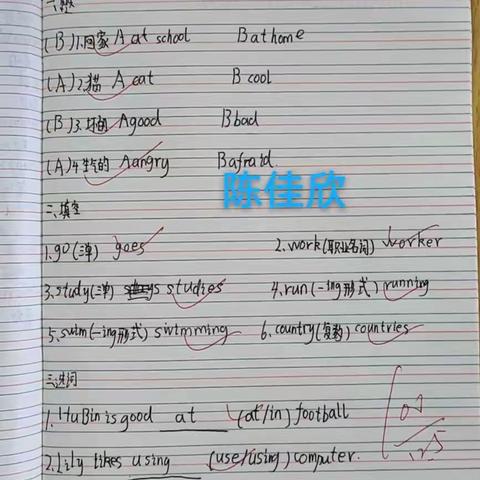 (B)1.回家 A at school B at home
(A)2.猫 A cat B cool
(B)3.坏的 A good B bad
(A)4.生气的 A angry B afraid.
陈佳欣
二、填空
1.go(三单) goes 2.work(职业名词) worker
3.study(三单) studies 4.run(-ing形式) running
5.swim(-ing形式) swimming 6.country(复数) countries
三.选词
1.HuBin is good at (at/in) football
2.Lily likes using (use/using) computer.